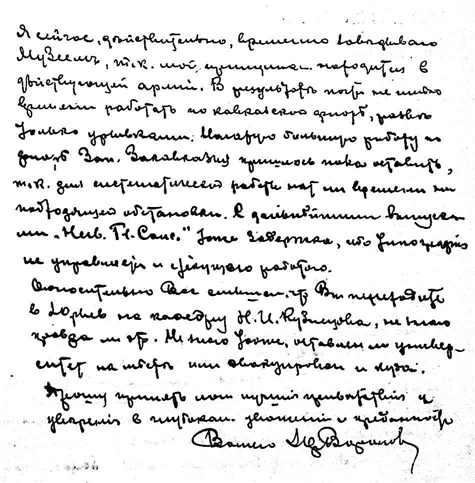 Я сейчас, действительно, временно заведываю
Музеем, т.к. мой принципал находится в
действующей армии. В результате почти не имею
времени работать по кавказской флоре, разве
только урывками. Начатую большую работу по
флоре Зап. Закавказья пришлось пока оставить,
т.к. для систематической работы нет ни времени ни
подходящей обстановки. С дальнейшими выпуска-
ми „ Тоже задержка, ибо типография
не управляется с работою.
Относительно Вас слышал, что Вы переходите
в Юрьев на кафедру Н.И. Кузнецова, не знаю
правда ли это. Не знаю также, оставлен ли универ-
ситет на месте или эвакуирован и куда.
Прошу принять мои лучшие приветствия и
уверения в глубоком уважении и преданности
Вашего Воронов